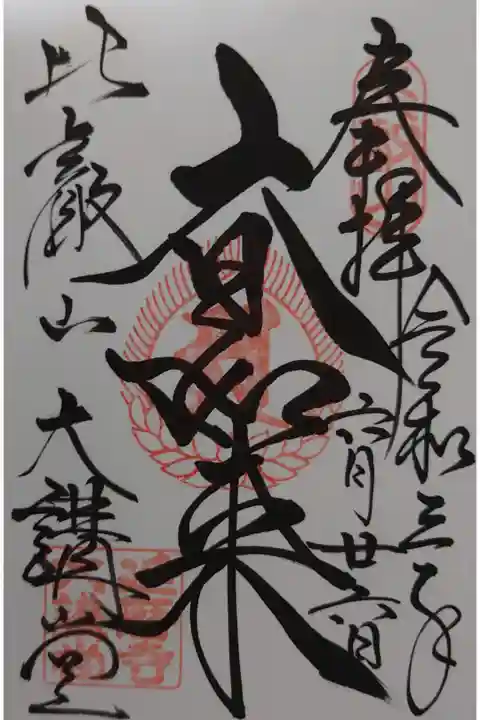 奉拝
令和三年
六月廿六日
大日如来
比叡山
大講堂